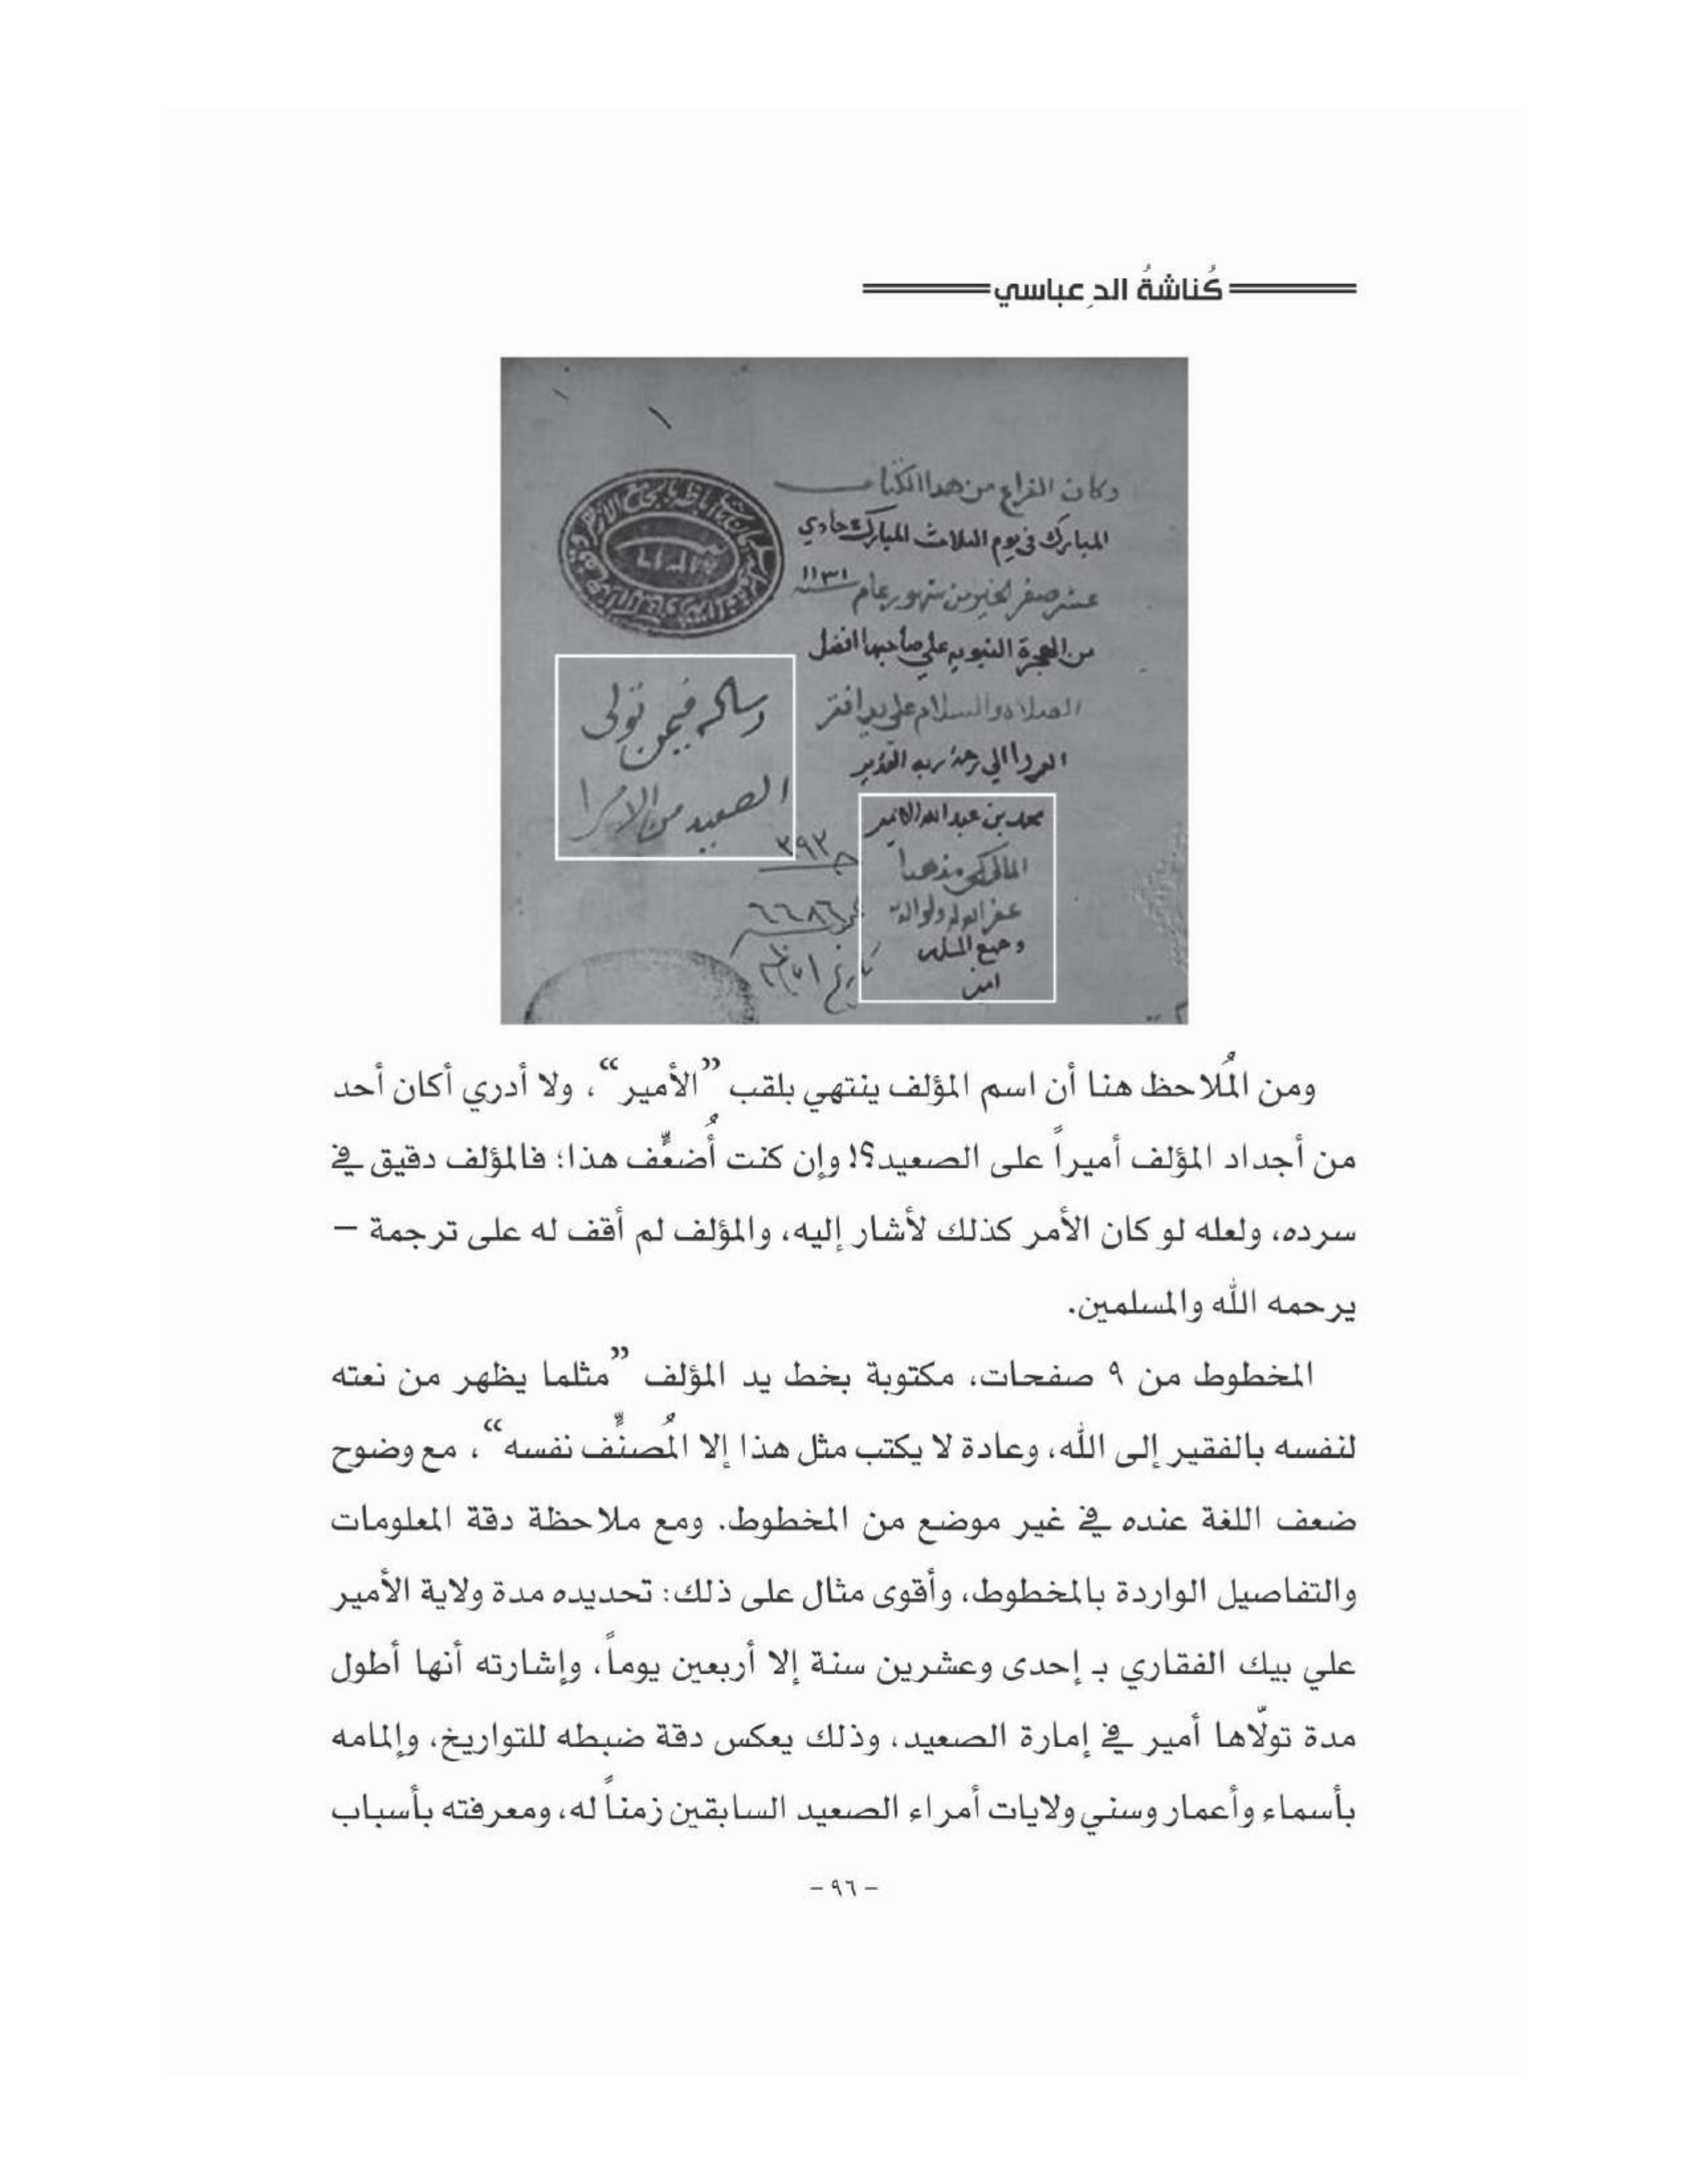 كُناشةُ الدِعباسي
وكان الفراغ من هدا الكتاب
المبارك في يوم الثلاث المبارك حادي
عشر صفر الخير من شهور عام سنة ١١٣١
من الهجرة النبويه علي صاحبها افضل
الصلاة والسلام علي يد افقر
الورا الي رحمة ربه القدير
محمد بن عبد الله الامير
المالكي مذهبا
غفر الله له ولوالديه
وجميع المسلمين
امين
رساله فيمن تولى
الصعيد من الامرا
٣٩٢
٦٦٨٦
تاريخ اباظه
ومن المُلاحظ هنا أن اسم المؤلف ينتهي بلقب ”الأمير“، ولا أدري أكان أحد
من أجداد المؤلف أميراً على الصعيد؟! وإن كنت أُضعِّف هذا؛ فالمؤلف دقيق في
سرده، ولعله لو كان الأمر كذلك لأشار إليه، والمؤلف لم أقف له على ترجمة –
يرحمه الله والمسلمين.
المخطوط من ٩ صفحات، مكتوبة بخط يد المؤلف ”مثلما يظهر من نعته
لنفسه بالفقير إلى الله، وعادة لا يكتب مثل هذا إلا المُصنِّف نفسه“، مع وضوح
ضعف اللغة عنده في غير موضع من المخطوط. ومع ملاحظة دقة المعلومات
والتفاصيل الواردة بالمخطوط، وأقوى مثال على ذلك: تحديده مدة ولاية الأمير
علي بيك الفقاري بـ إحدى وعشرين سنة إلا أربعين يوماً، وإشارته أنها أطول
مدة تولّاها أمير في إمارة الصعيد، وذلك يعكس دقة ضبطه للتواريخ، وإلمامه
بأسماء وأعمار وسني ولايات أمراء الصعيد السابقين زمناً له، ومعرفته بأسباب
– ٩٦ –